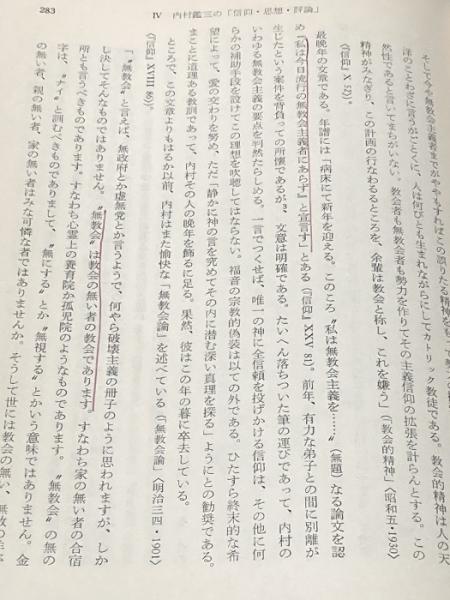 283
Ⅳ 内村鑑三の「信仰・思想・評論」
そして今や無教会主義者までがややもすればこの誤りたる精神を
洋のことわざに言うがごとくに、人は何びとも生まれながらにしてカトリック教徒である。教会的精神は人の天
然性であると言いてまちがいない。教会者も無教会者も勢力を作りてその主義信仰の拡張を計らんとする。この
精神がみなぎり、この計画の行なわるるところを、余輩は教会と称し、これを嫌う」(「教会的精神」〈昭和五・1930〉
〈信仰〉X 52)。
最晩年の文章である。年譜には「病床にて新年を迎える。このころ〝私は無教会主義を……〟〈無題〉なる論文を認
め『私は今日流行の無教会主義者にあらず』と宣言す」とある(『信仰』XXV 81)。前年、有力な弟子との間に別離が
生じたという案件を背負っての所懐であるが、文意は明確である。たいへん落ちついた筆の運びであって、内村の
いわゆる無教会主義の要点を判然たらしめる。一言でつくせば、唯一の神に全信頼を投げかける信仰は、その他に何
らかの補助手段を設けてこの理想を吹聴してはならない。福音の宗教的偽装は以ての外である。ひたすら終末的な希
望によって、愛の交わりを努め、ただ「静かに神の言を究めてその内に潜む深い真理を探る」ようにとの勧奨である。
まことに道理ある教訓であって、内村その人の晩年を飾るに足る。果然、彼はこの年の暮に卒去している。
ところで、この文章よりもはるか以前、内村はまた愉快な「無教会論」を述べている(「無教会論」〈明治三四・1901〉
〈信仰〉XVIII 86)。
「〝無教会〟と言えば、無政府とか虚無党とか言うようで、何やら破壊主義の冊子のように思われますが、しか
し決してそんなものではありません。〝無教会〟は教会の無い者の教会であります。すなわち家の無い者の合宿
所とも言うべきものであります。すなわち心霊上の養育院か孤児院のようなものであります。〝無教会〟の無の
字は、〝ナイ〟と訓むべきものでありまして、〝無にする〟とか〝無視する〟とかいう意味ではありません。金
の無い者、親の無い者、家の無い者はみな可憐な者ではありませんか。そうして世には教会の無い、